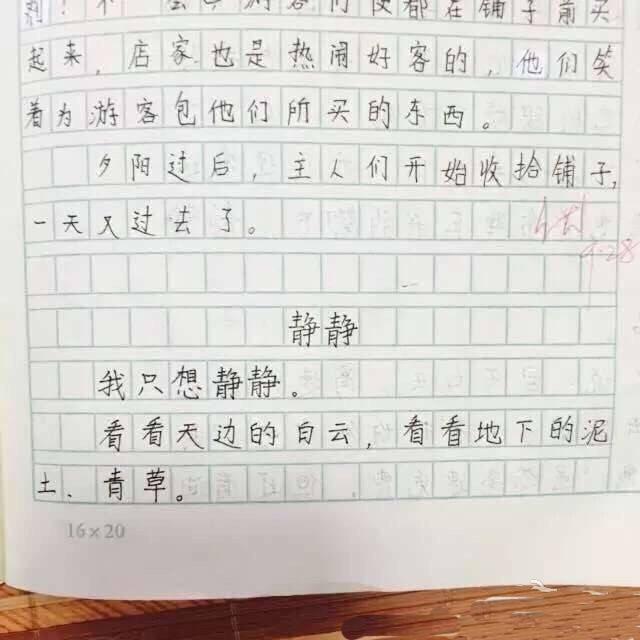 们便都在铺子前买
起来，店家也是热闹好客的，他们笑
着为游客包他们所买的东西。
夕阳过后，主人们开始收拾铺子，
一天又过去了。
4.28
静静
我只想静静。
看看天边的白云，看看地下的泥
土、青草。
16×20